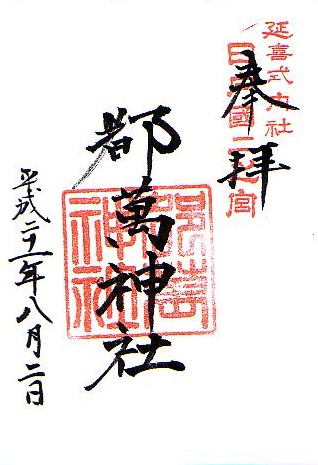 延喜式内社
日向國二之宮
奉拝
都萬神社
都萬神社
平成二十一年八月二日